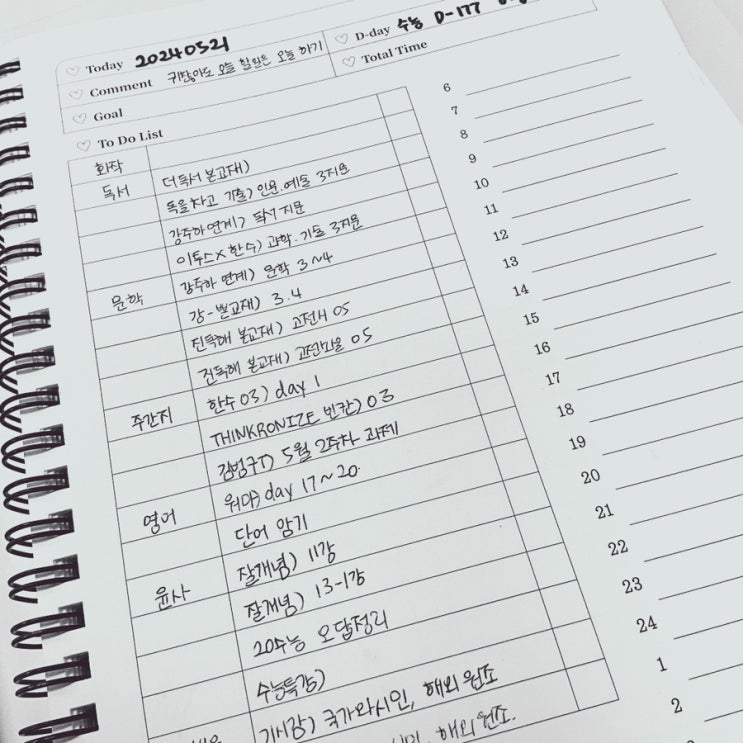 Today 20240521
D-day 수능 D-177
Comment 귀찮아도 오늘 할일은 오늘 하기
Total Time
Goal
To Do List
화작
독서 더독서 본교재)
독을차고 기출) 인문.예술 3지문
강주하 연계) 독서 지문
이투스X한수) 과학.기술 3지문
문학 강주하 연계) 문학 3~4
강-본교재) 3.4
진독해 본교재) 고전시 05
진독해 본교재) 고전산문 05
주간지 한수 03) day 1
THINKRONIZE 빈칸) 03
김범구T) 5월 2주차 과제
영어 워마) day 17~20
단어 암기
윤사 잘개념) 11강
잘개념) 13-1강
20수능 오답정리
수능특강)
기시감) 국가와시민, 해외원조
해외원조.
6
7
8
9
10
11
12
13
14
15
16
17
18
19
20
21
22
23
24
1
2